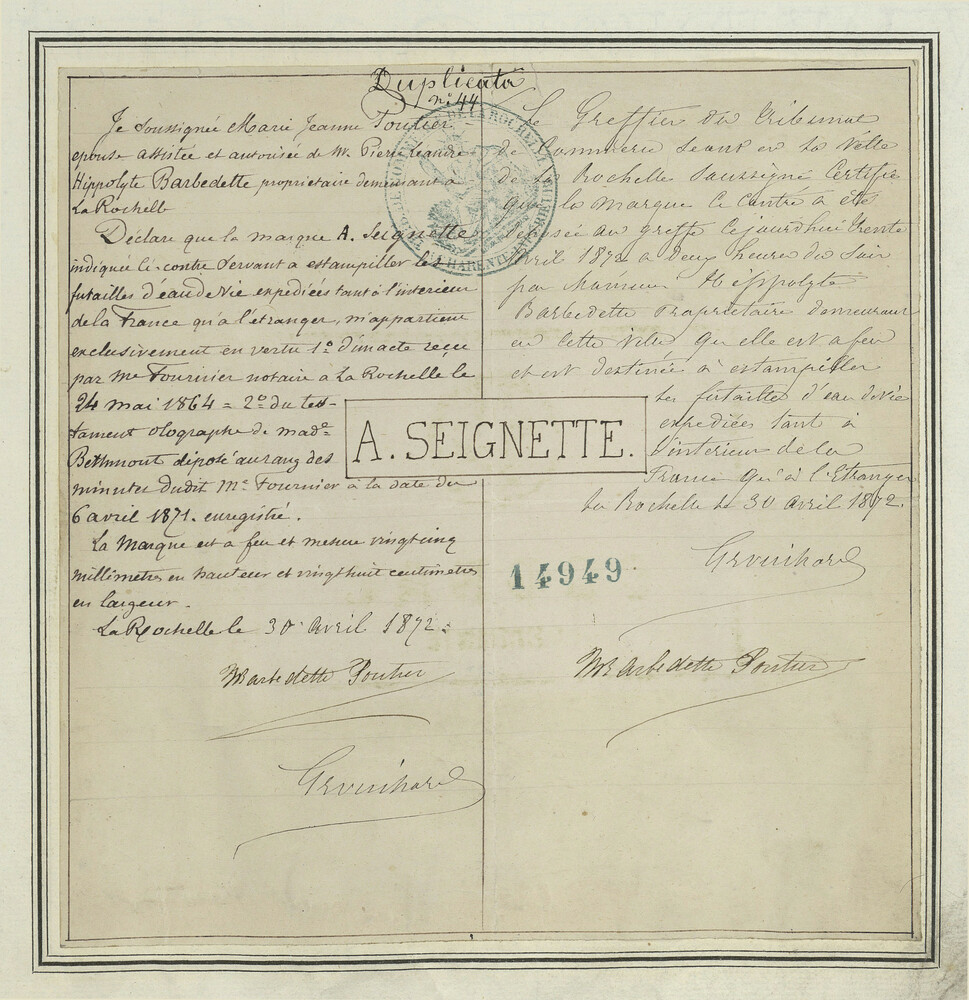 Duplicata
n° 44
Je soussignée Marie Jeanne Poutier
epouse assistée et autorisée de M. Pierre Leandre
Hippolyte Barbedette propriétaire demeurant a
La Rochelle
Déclare que la marque A. Seignette
indiquée ci-contre servant a estampiller les
futailles d'eau de vie expediées tant à l'interieur
de la France qu'à l'étranger, m'appartient
exclusivement en vertu 1° d'un acte reçu
par Me Fournier notaire à La Rochelle le
24 mai 1864 = 2° du tes-
tament olographe de made
Bethmont déposé au rang des
minutes dudit Me Fournier à la date du
6 avril 1871. enregistré.
La Marque est a feu et mesure vingt cinq
millimetres en hauteur et vingt huit centimetres
en largeur.
La Rochelle le 30 Avril 1872.
M Barbedette Poutier
Le Greffier du Tribunal
de Commerce séant en la Ville
de La Rochelle Soussigné Certifie
que la marque Ci Contre a été
déposée au Greffe Cejourd'hui trente
Avril 1872 a Deux heures du Soir
par Hippolyte
Barbedette Propriétaire demeurant
en cette ville qu'elle est a feu
et est destinée à estampiller
les futailles d'eau de vie
expediées tant à
l'interieur de la
France qu'à l'Etranger
La Rochelle le 30 Avril 1872.
M Barbedette Poutier
A. SEIGNETTE.
14949.